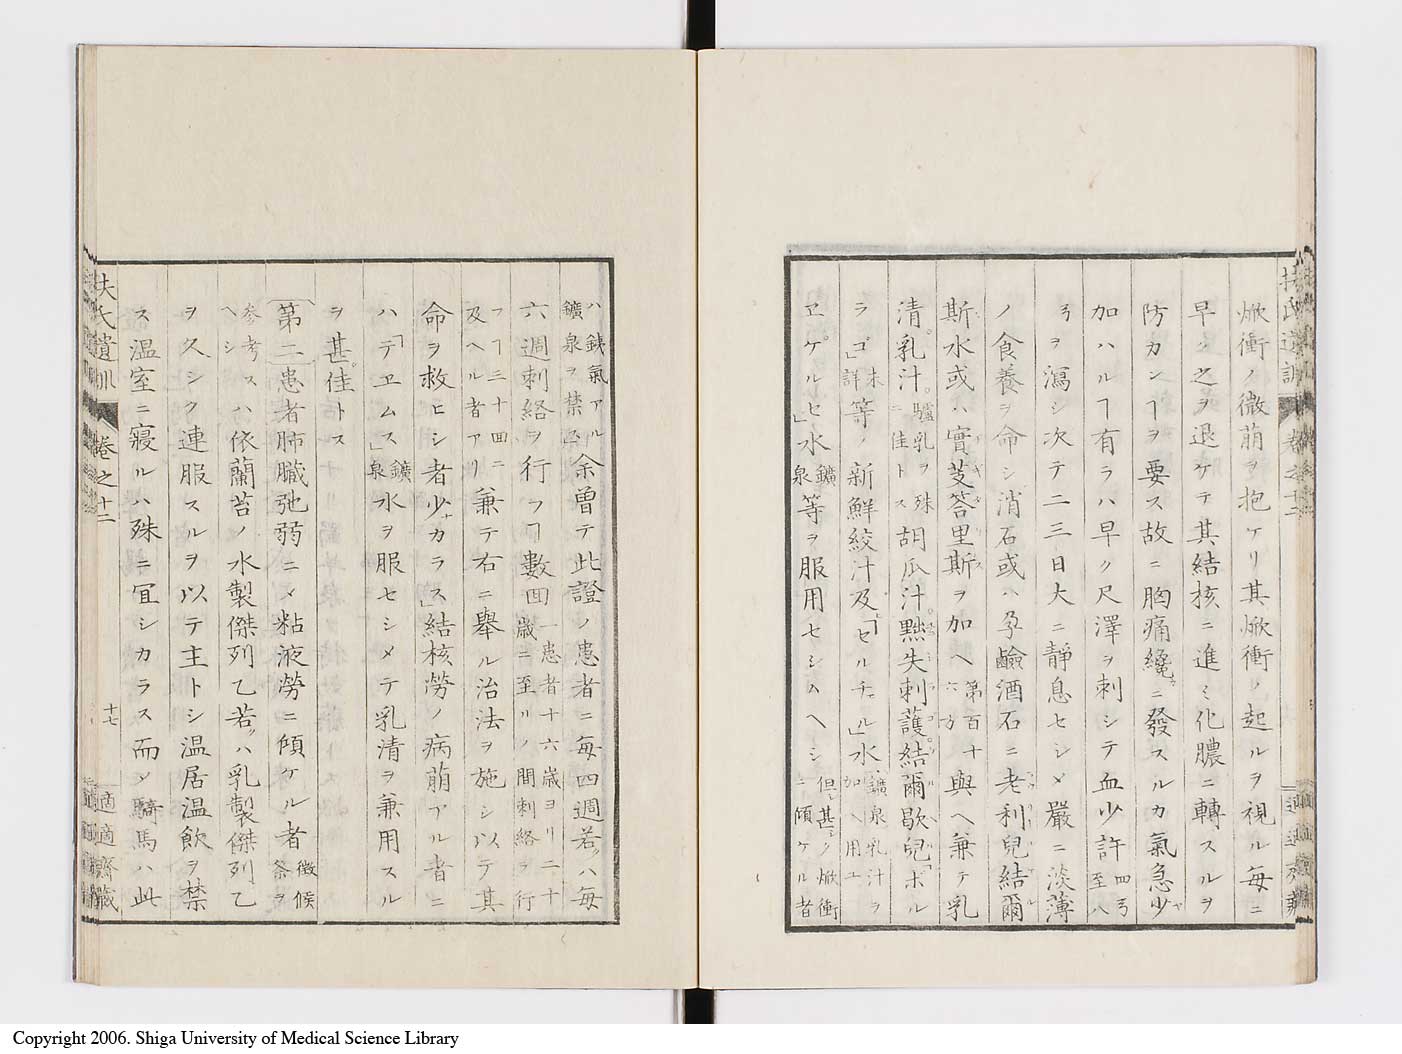 焮衝ノ微萠ヲ抱ケリ其焮衝ノ起ルヲ視ル每ニ
早ク之ヲ退ケテ其結核ニ進ミ化膿ニ轉スルヲ
防カンヿヲ要ス故ニ胸痛纔ニ發スルカ氣急少
加ハルヿ有ラハ早ク尺澤ヲ刺シテ血少許四弓至八
弓ヲ瀉シ次テ二三日大ニ靜息セシメ嚴ニ淡薄
ノ食養ヲ命シ消石或ハ孕鹼酒石ニ老利兒結爾
斯水或ハ實芰答里斯ヲ加ヘ第百十六方與ヘ兼テ乳
清乳汁驢乳ヲ殊ニ佳トス胡瓜汁㸃失刺護結爾歇兒「ボル
ラゴ」未詳等ノ新鮮絞汁及「セルチャル」水鑛泉乳汁ヲ加ヘ用ユ
ヱケルセ」水鑛泉等ヲ服用セシムヘシ但甚シク焮衝ニ傾ケル者
ハ鉄氣アル鑛泉ヲ禁ス余曾テ此證ノ患者ニ每四週若クハ每
六週刺絡ヲ行フヿ數回一患者十六歳ヨリ二十歳ニ至リノ間刺絡ヲ行
フヿ三十四ニ及ヘル者アリ兼テ右ニ舉ル治法ヲ施シ以テ其
命ヲ救ヒシ者少ナカラス」結核勞ノ病萠アル者ニ
ハ「テヱムス」鑛泉水ヲ服セシメテ乳清ヲ兼用スル
ヲ甚佳トス
第二患者肺臓弛弱ニ〆粘液勞ニ傾ケル者徴候條ヲ
參考スヘシハ依蘭苔ノ水製傑列乙若クハ乳製傑列乙
ヲ久シク連服スルヲ以テ主トシ温居温飲ヲ禁
ス温室ニ寢ルハ殊ニ冝シカラス而〆騎馬ハ此
扶氏遺訓
卷之十二
十七
適適齋藏
Copyright 2006. Shiga University of Medical Science Library